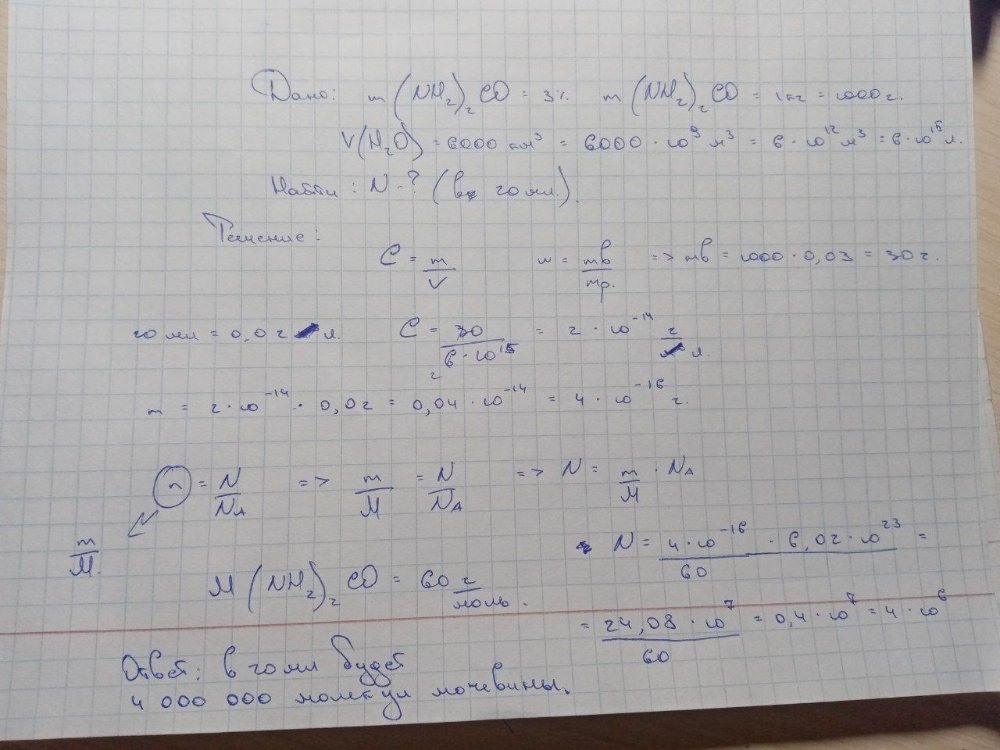 Дано: m (NH₂)₂CO = 3%. m (NH₂)₂CO = 1кг = 1000г.
V(H₂O) = 6000 км³ = 6000 · 10⁹ м³ = 6 · 10¹² м³ = 6 · 10¹⁵ л.
Найти: N - ? (в 20 мл.).
Решение:
C = m/V w = mв/mр. => mв = 1000 · 0,03 = 30 г.
20 мл = 0,02 л. C = 30/6 · 10¹⁵ = 2 · 10⁻¹⁴ г/л.
2
m = 2 · 10⁻¹⁴ · 0,02 = 0,04 · 10⁻¹⁴ = 4 · 10⁻¹⁶ г.
n = N/Nᴀ => m/M = N/Nᴀ => N = m/M · Nᴀ
m/M.
N = 4 · 10⁻¹⁶ · 6,02 · 10²³/60 =
M (NH₂)₂CO = 60 г/моль.
= 24,08 · 10⁷/60 = 0,4 · 10⁷ = 4 · 10⁶
Ответ: в 20 мл будет
4 000 000 молекул мочевины.